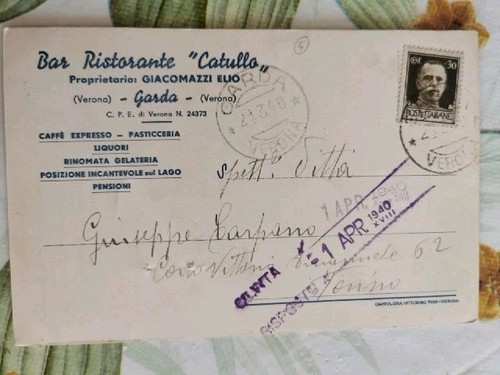 Bar Ristorante "Catullo"
Proprietario: GIACOMAZZI ELIO
(Verona) - Garda - (Verona)
C. P. E. di Verona N. 24373
CAFFÈ EXPRESSO - PASTICCERIA
LIQUORI
RINOMATA GELATERIA
POSIZIONE INCANTEVOLE sul LAGO
PENSIONI
5
GARDA
VERONA
CENT. 30
POSTE ITALIANE
VERONA
Spett. Ditta
Giuseppe Carpano
Corso Vittorio Emanuele 62
Torino
1 APR. 1940
1 APR 1940
XVIII
GIUNTA
RISPOSTA
CARTOLERIA VITTORINO TOGI - VERONA